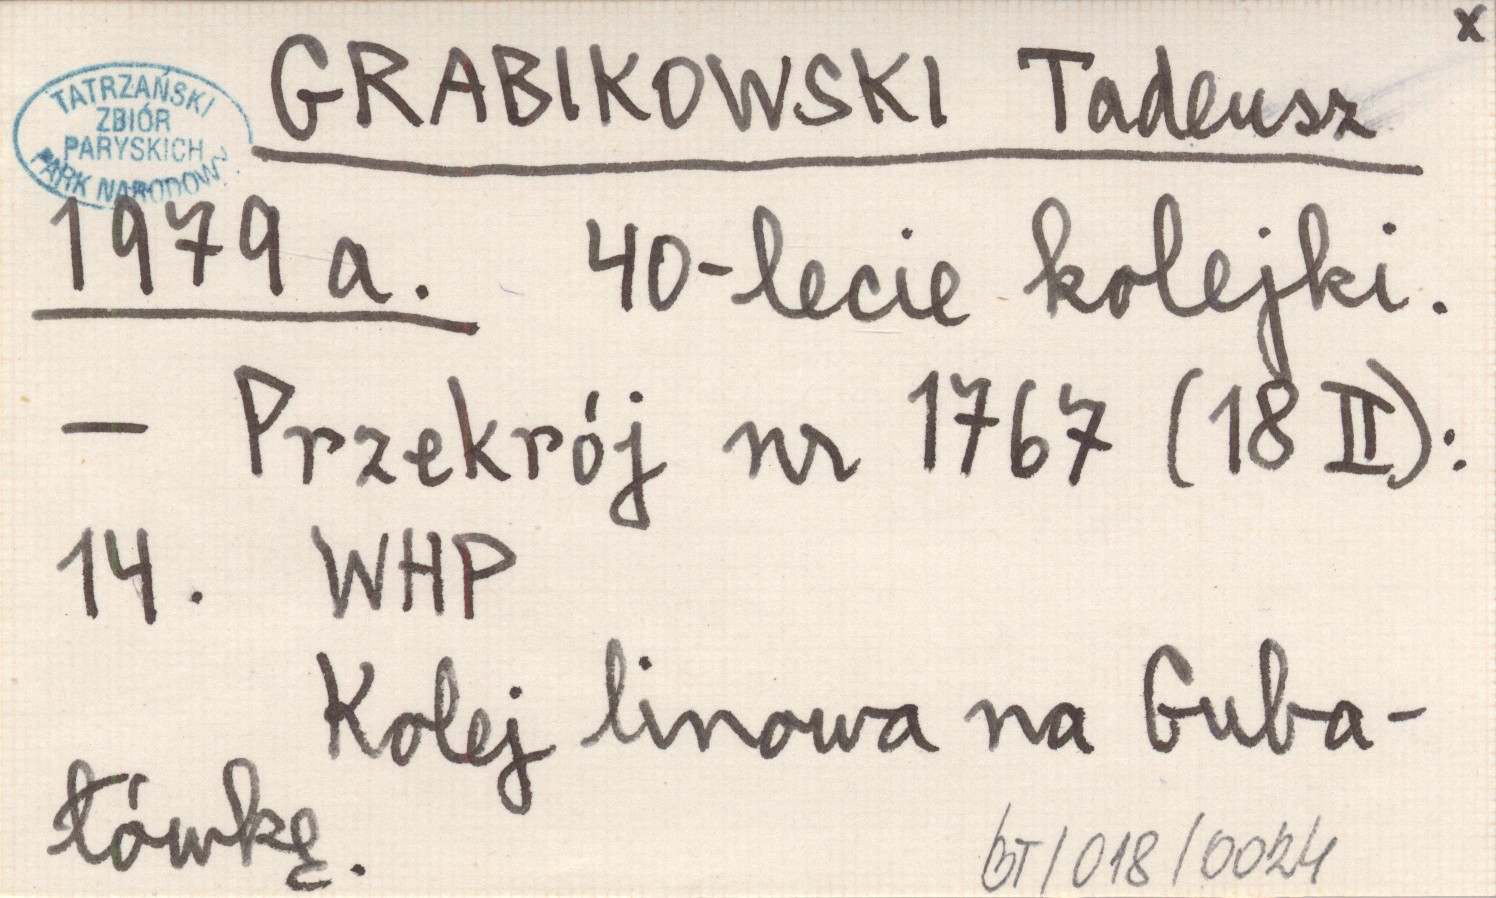 x
GRABIKOWSKI Tadeusz
TATRZAŃSKI
ZBIÓR
PARYSKICH
PARK NARODOWY
1979 a. 40-lecie kolejki.
— Przekrój nr 1767 (18 II):
14. WHP
Kolej linowa na Guba-
łówkę.
BT/018/0024